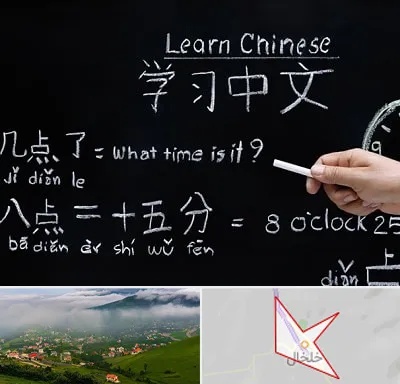 Learn Chinese
学习中文
几点了 = What time is it?
jǐ diǎn le
八点二十五分 = 8 o'clock 25
bā diǎn èr shí wǔ fēn
diǎn
上
9
خلخال